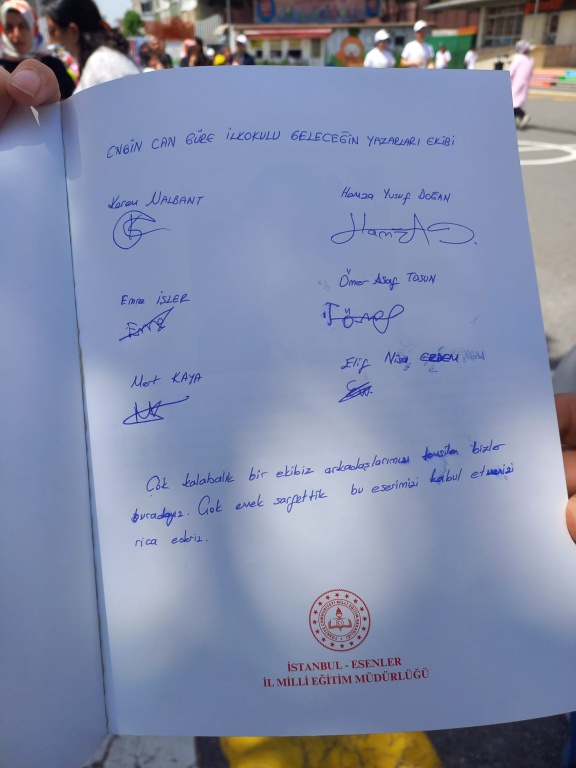 ENGİN CAN GÜRE İLKOKULU GELECEĞİN YAZARLARI EKİBİ
Kerem NALBANT
Hamza Yusuf DOĞAN
HamzA D.
Emre İŞLER
Ömer Asaf TOSUN
Mert KAYA
Elif Nisa ERDEM
Çok kalabalık bir ekibiz arkadaşlarımızı temsilen bizler
buradayız. Çok emek sarfettik bu eserimizi kabul etmenizi
rica ederiz.
İSTANBUL - ESENLER
İL MİLLİ EĞİTİM MÜDÜRLÜĞÜ